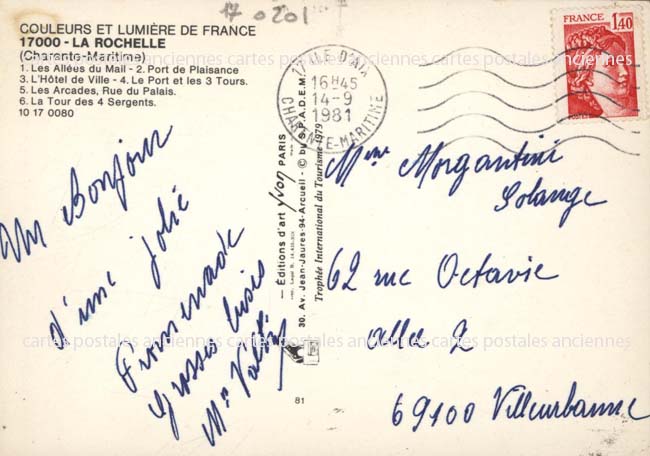 17 0201
COULEURS ET LUMIÈRE DE FRANCE
17000 - LA ROCHELLE
(Charente-Maritime)
1. Les Allées du Mail - 2. Port de Plaisance
3. L'Hôtel de Ville - 4. Le Port et les 3 Tours.
5. Les Arcades, Rue du Palais.
6. La Tour des 4 Sergents.
10 17 0080
cartes postales anciennes cartes postales anciennes cartes postales anciennes
Un Bonjour
d'une jolie
Promenade
Grosses bises
— Éditions d'art yvon PARIS
30. Av. Jean-Jaurès-94-Arcueil - © by S.P.A.D.E.M.
Trophée International du Tourisme 1979
81
17 ILE D'AIX
16H45
14-9
1981
CHARENTE-MARITIME
FRANCE
1,40
POSTES
Mme Morgantini
Solange
62 rue Octavie
allee 2
69100 Villeurbanne
cartes postales anciennes cartes postales anciennes cartes postales anciennes